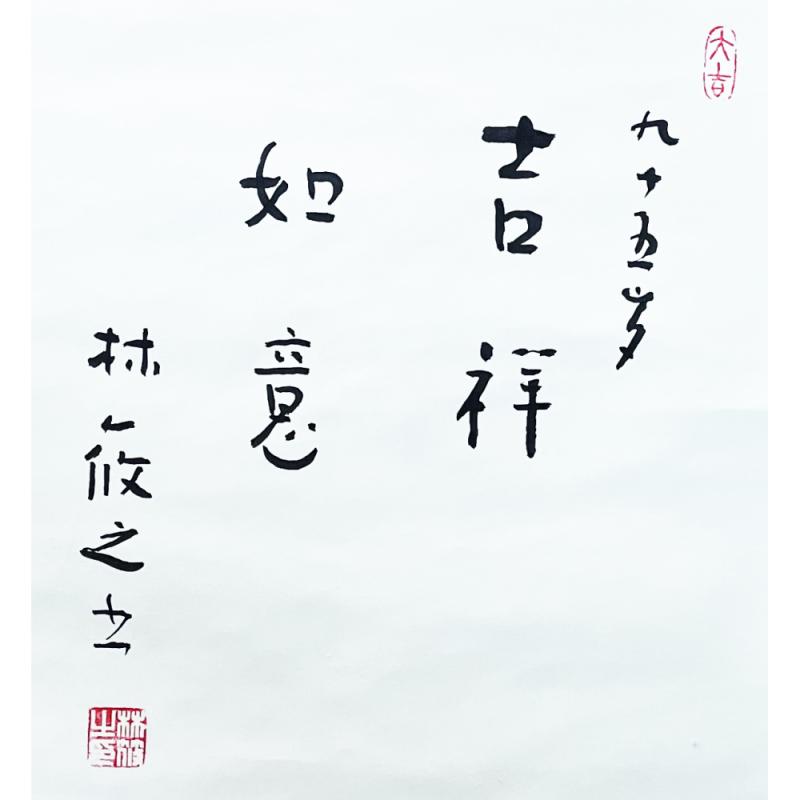 大吉
九十五岁
吉祥
如意
林筱之书
林筱之印